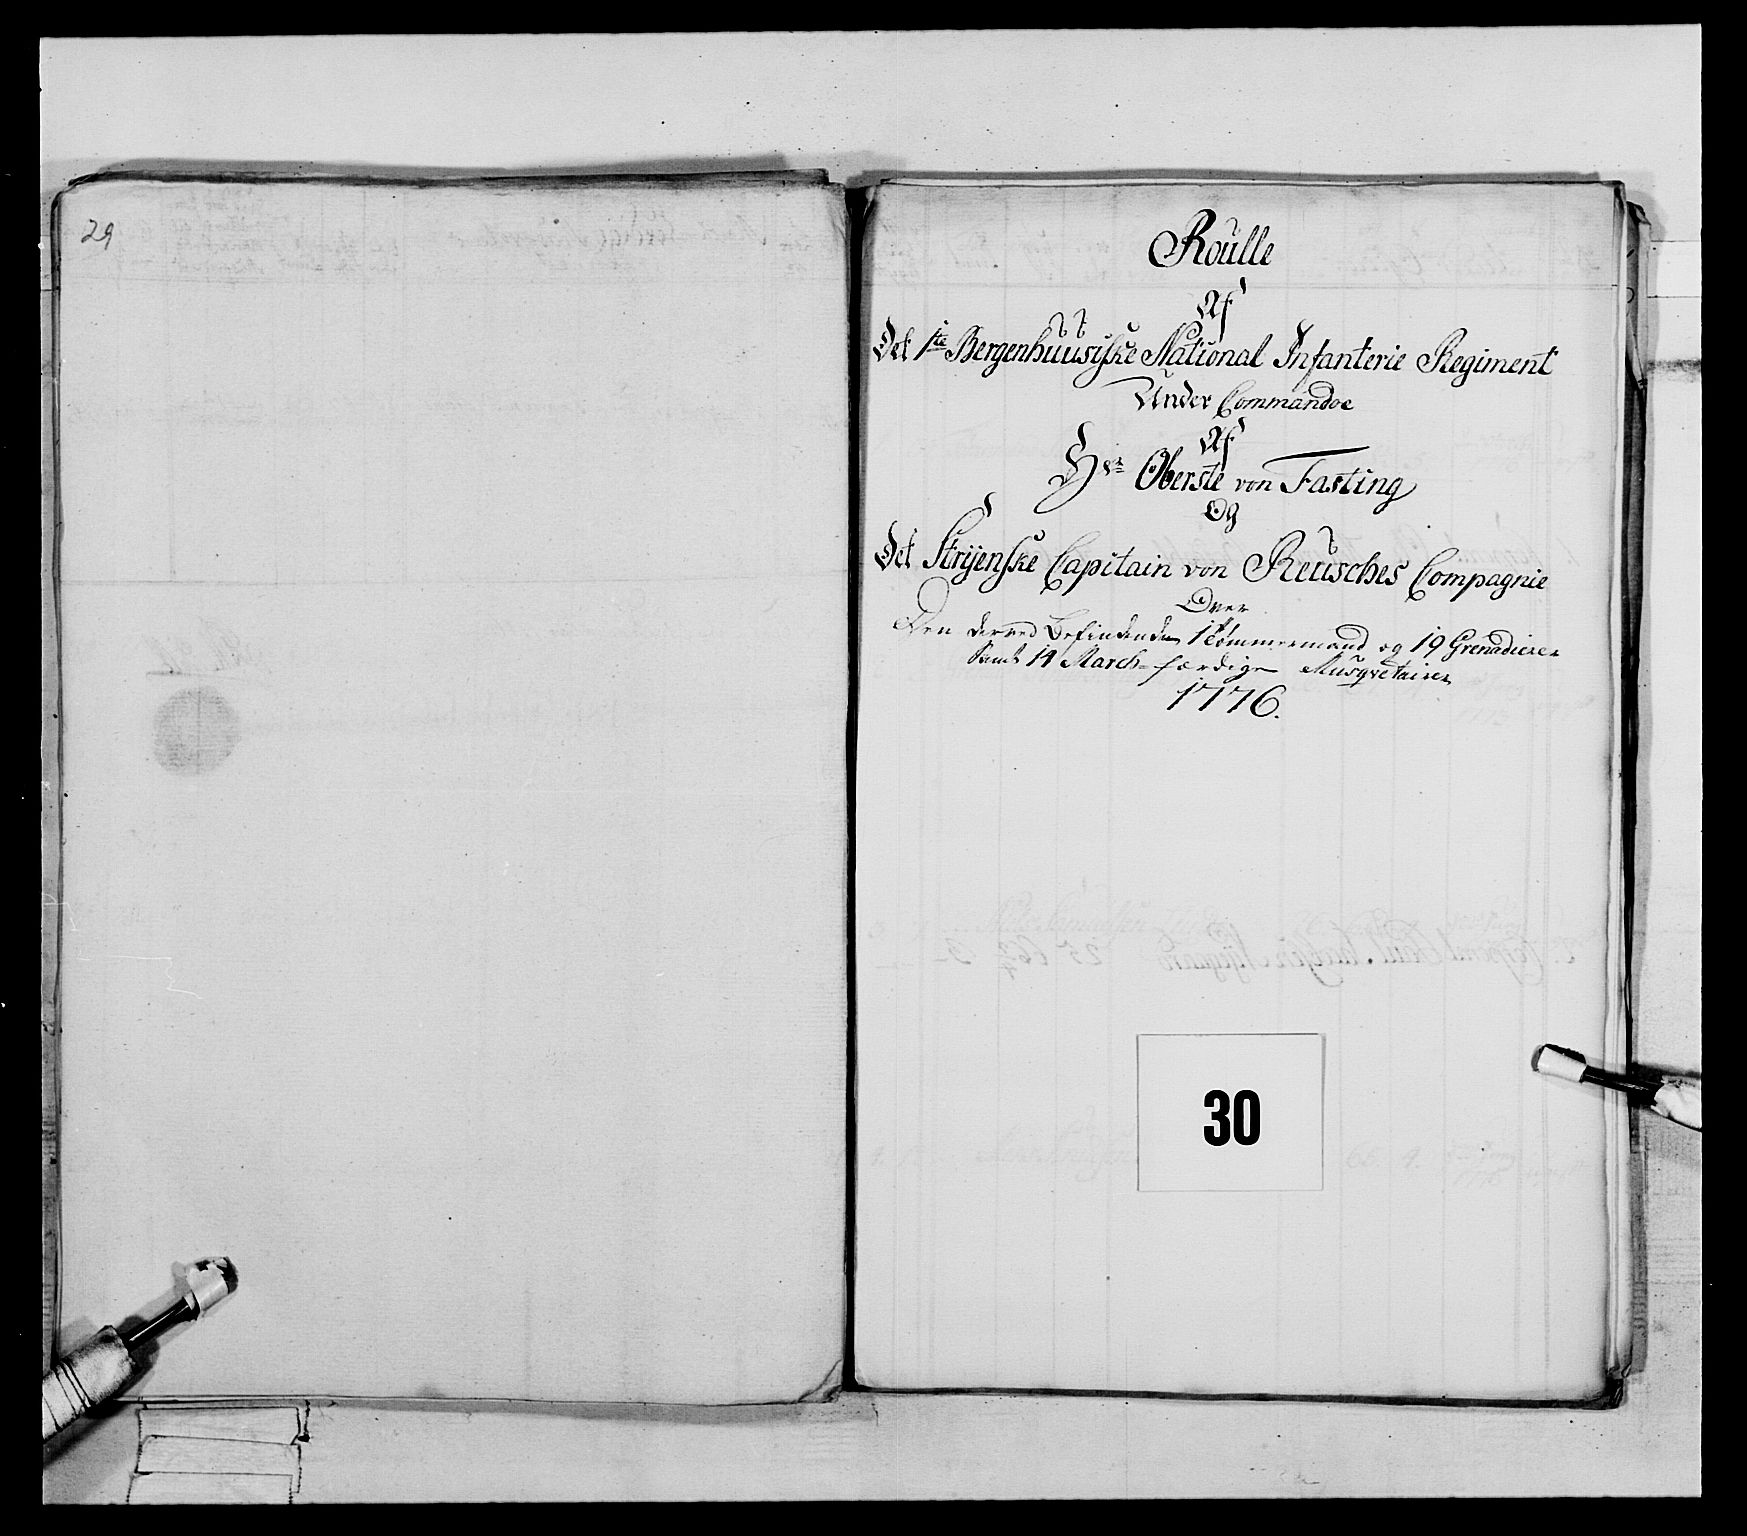 29
Roulle
Af
Det 1te Bergenhuusiske National Infanterie Regiment
Under Commandoe
Af
Hr Oberste von Fasting
Og
Det Strÿenske Capitain von Reusches Compagnie
Over
Den derved Befindende 1 Tømmermand og 19 Grenadierer
Samt 14 March-færdige Musqvetairer
1776.
30